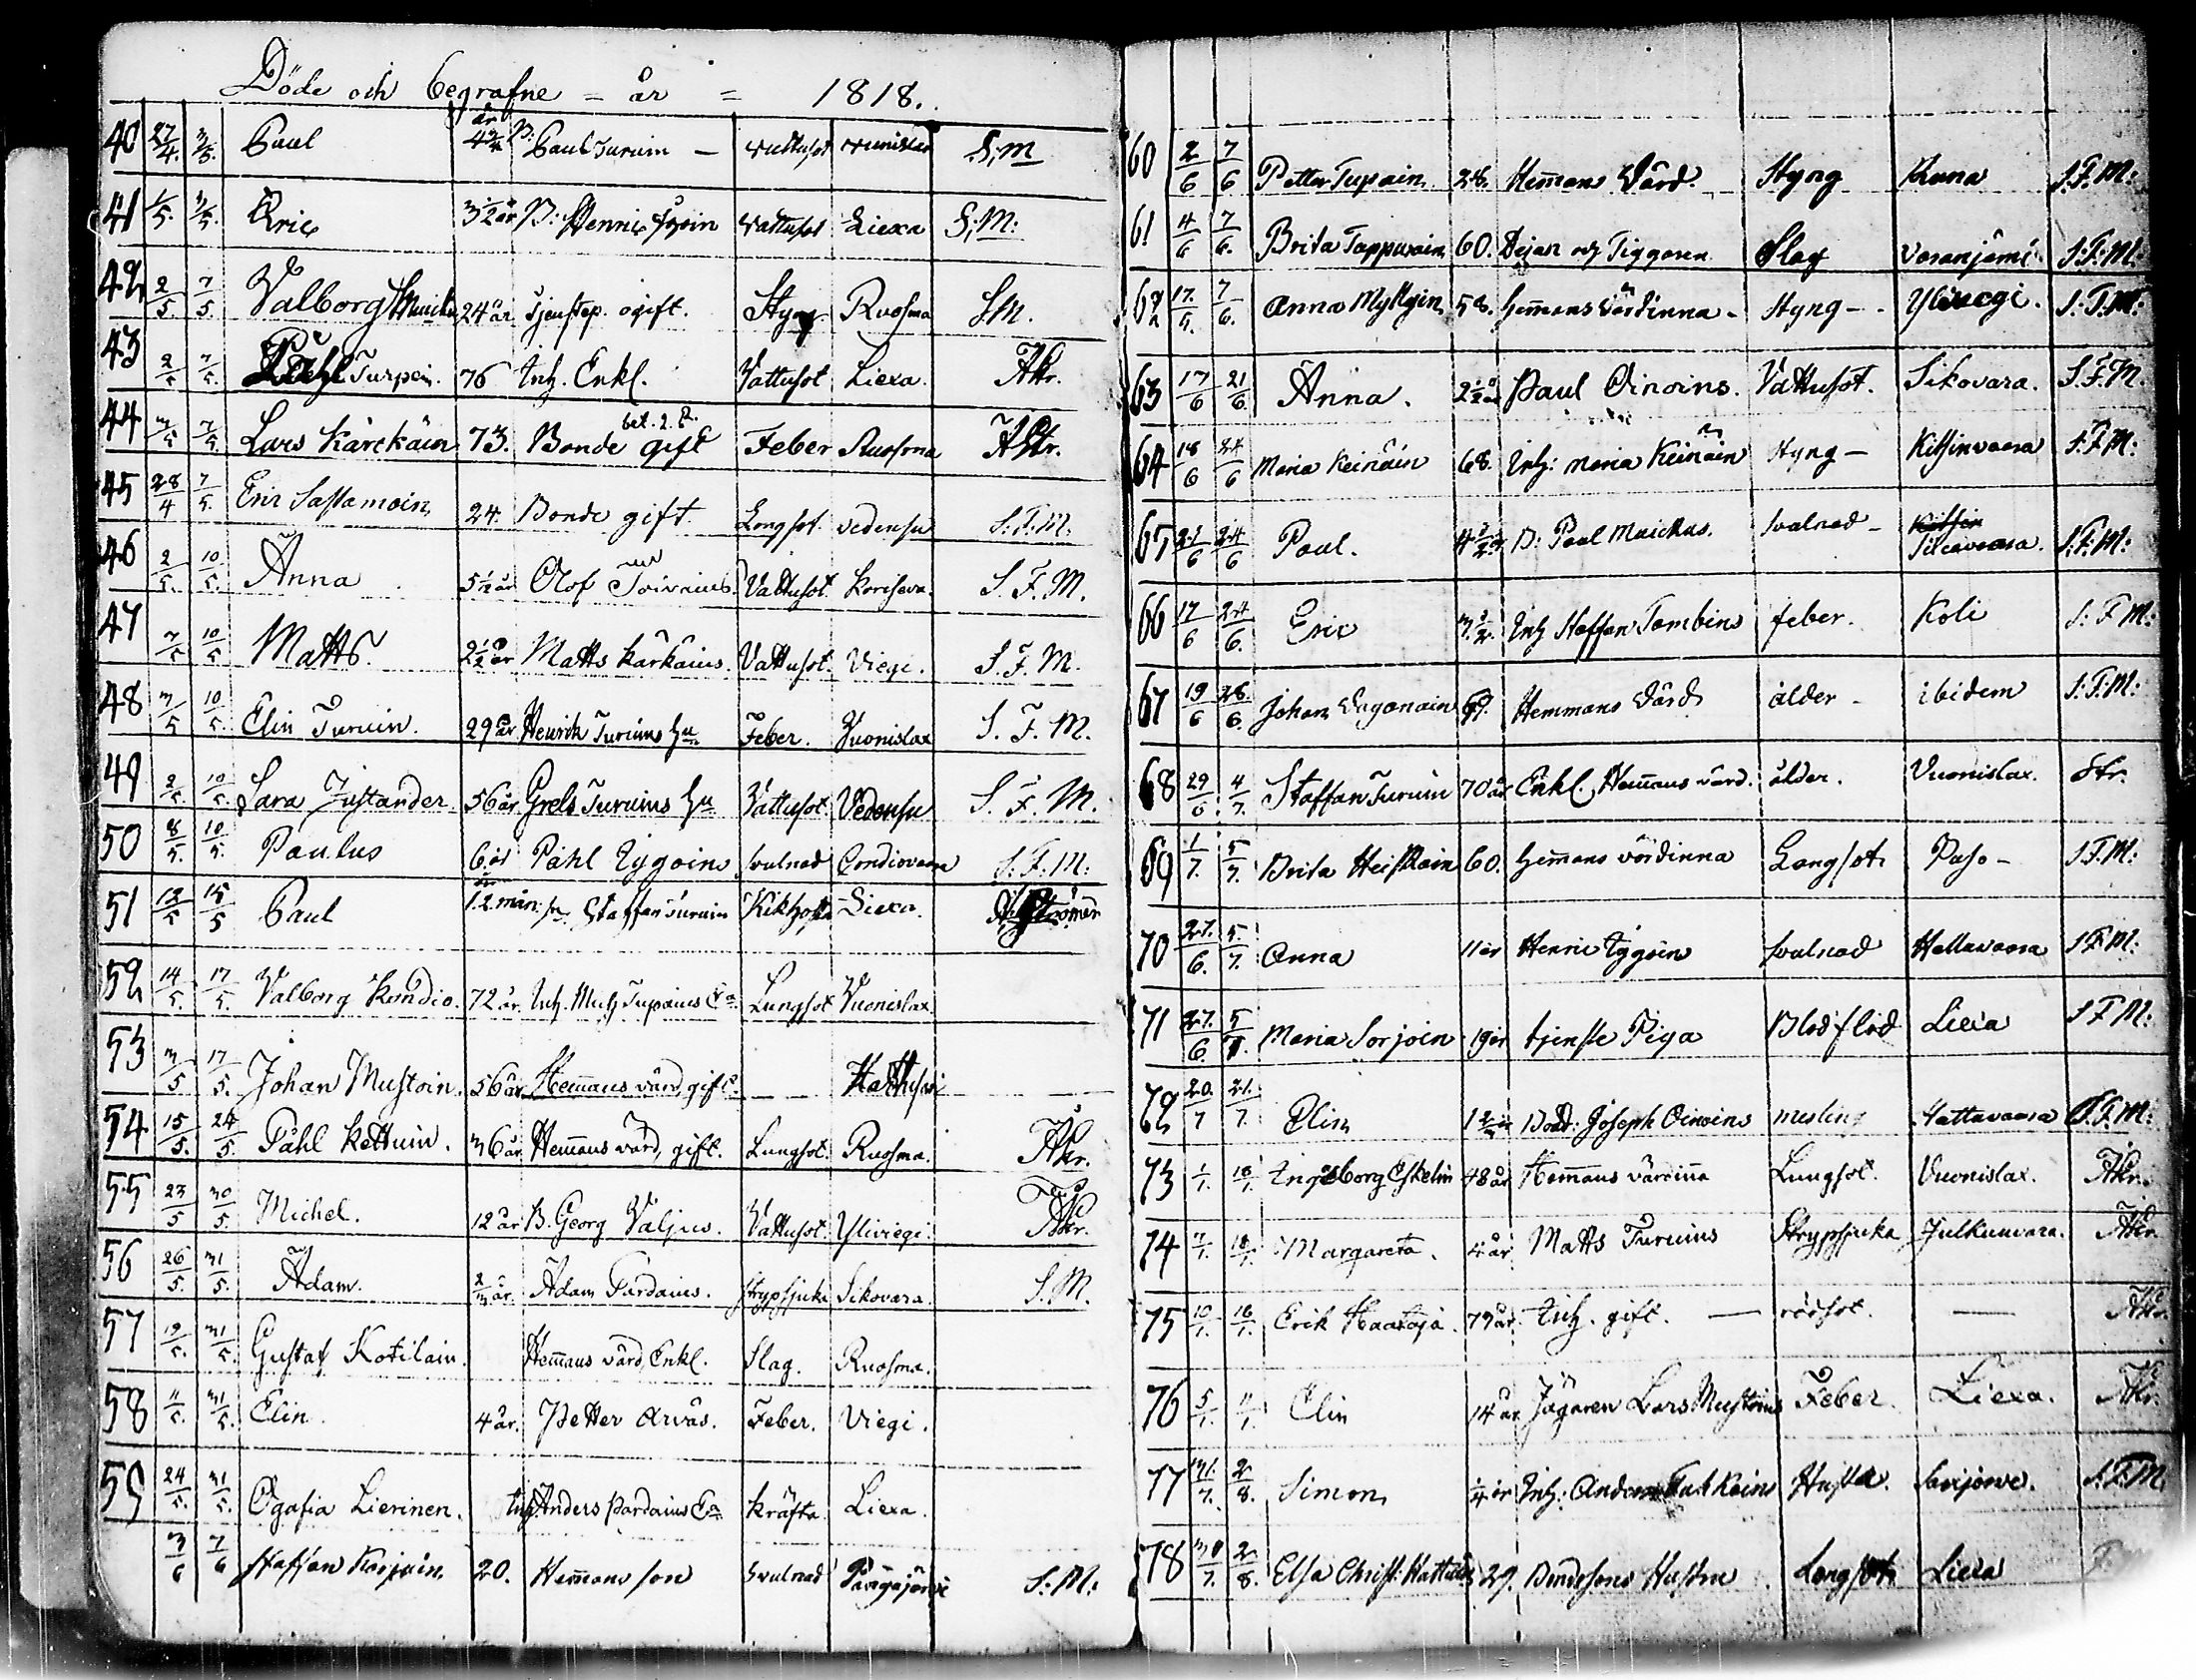 Döde och begrafne = år = 1818.
40 27/4. 3/5. Paul 4 år B: Paul Turuin — Vattusot Vuonislax S; M
41 1/5. 3/5. Eric 3 1/2 år B: Henric Vattusot Liexa S; M:
42 2/5. 7/5. Valborg 24 år tjenstep. ogift. Styng Ruosma SM.
43 2/5 7/5. Påhl Turpein. 76 Inh. Enkl. Vattusot Liexa. Åkr.
44 3/5 7/5. Lars Kärckäin 73. Bonde gift Feber Ruosma Åkr.
45 28/4 7/5. Eric Sassamoin 24. Bonde gift. Longsot vedensu S: F: M:
46 2/5. 10/5. Anna 5 1/2 år Olof Toivains. Vattusot S. F. M.
47 3/5 10/5 Matts. 2 1/2 år Matts Kärkäins. Vattusot Viegi. S. F. M.
48 3/5 10/5. Elin Turuin. 29 år Henrik Turuins hu Feber. Vuonislax S. F. M.
49 2/5. 10/5. Sara Justander. 56 år. Grels Turuins hu Vattusot Vedensu S. F. M.
50 8/5. 10/5. Paulus 6. år Påhl Tygoins svulnad Condiovaara S: F: M:
51 12/5 15/5 Paul 12 mån: Staffan Turuin Kikhosta Liexa.
52 14/5. 17/5. Valborg Kondio. 72 år. Inh. Mich Tupains Ea Lungsot Vuonislax
53 3/5 17/5. Johan Mustoin. 56 år Hemans värd, gift. —
54 15/5. 24/5. Påhl Kettuin. 36 år Hemans värd, gift. Lungsot. Ruosma. Åkr.
55 23/5 30/5. Michel. 12 år B. Georg Valjus. Vattusot. Yliviegi. Åkr.
56 26/5. 31/5. Adam. 2/3 år. Adam Pardains. Strypsjuka Sikovara. S. M.
57 19/5. 31/5. Gustaf Kotilain. Hemans värd, Enkl. Slag. Ruosma.
58 11/5. 31/5. Elin. 4 år. Petter Arvas. Feber. Viegi.
59 24/5. 31/5. Ogafia Lierinen. Inh Anders Pardains Ea kräfta Liexa.
3/6 7/6 Staffan Karjain 20. Hemans son svulnad S: M:
60 2/6 7/6 Petter Tupain 28. Hemans Värd. Styng Runa S. F. M:
61 4/6 7/6. Brita Tappurain 60. och Tiggaren Slag S: F: M:
62 17/5. 7/6. Anna Myllyin 58. hemans Värdinna — Styng — Yliviegi. S: F: M:
63 17/6 21/6. Anna. 2 1/2 år Paul Oinoins. Vattusot. Sikovara. S. F. M.
64 18/6 24/6 Maria Keinäin 68. Inh: Maria Keinäin Styng — Kitsinvaara S: F: M:
65 21/6 24/6 Paul. 4 1/2 år B: Paul Muickus. svalnad — S: F: M:
66 17/6 24/6. Eric 3 1/2. Inh Staffan Tombins feber. Koli S: F M:
67 19/6 28/6. Johan 69. Hemmans Värd ålder — ibidem S: F: M:
68 29/6 4/7. Staffan Turuin 70 år Enkl. Hemans värd. ålder. Vuonislax. Åkr.
69 1/7. 5/7. Brita Heiskain 60. hemans värdinna Langsot Paso — S. F. M:
70 27./6. 5/7. Anna 11 år Henric Tygoins svalnad Hattuvaara S F M:
71 27./6. 5/7. Maria Sorjoin 19 år tjenste Piga Blodflöd Liexa S F M:
72 20./7 21./7. Elin Bond: Joseph Oinoins mesling Hattavaara S. F. M:
73 1/7. 18/7. Ingeborg Eskelin 48 år Hemans värdina Lungsot. Vuonislax. Åkr.
74 7/7. 18/7. Margareta. 4 år Matts Turuins Strypsjuka Julkunvara. Åkr.
75 10/7. 18/7. Erik Haataja. 79 år. Inh. gift. — rödsot. — Åkr.
76 5/7. 11/7. Elin 14 år Jägaren Lars Mustoins Feber. Liexa. Åkr.
77 31./7. 2/8. Simon 1/4 år Inh: Hosta. Savijärve. S. F. M
78 30/7. 2/8. Elsa Christ: 29. Bondesons Hustru. Longsot Liexa